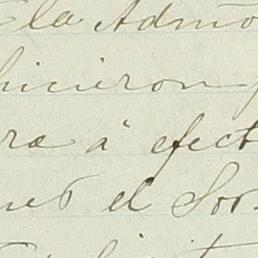 la Admo
hicieron
ra á efect
nes el Sor.